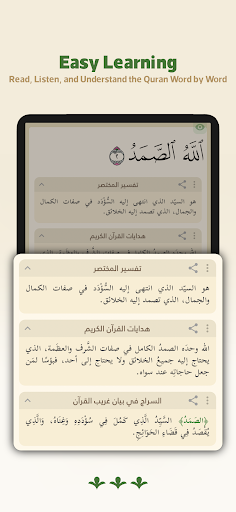 Easy Learning
Read, Listen, and Understand the Quran Word by Word
ٱللَّهُ ٱلصَّمَدُ ٢
تفسير المختصر
هو السيّد الذي انتهى إليه السُّؤْدَد في صفات الكمال
والجمال، الذي تصمد إليه الخلائق.
هدايات القرآن الكريم
تفسير المختصر
هو السيّد الذي انتهى إليه السُّؤْدَد في صفات الكمال
والجمال، الذي تصمد إليه الخلائق.
هدايات القرآن الكريم
الله وحدَه الصمدُ الكامل في صفات الشَّرف والعظَمة، الذي
يحتاج إليه جميعُ الخلائق ولا يحتاج إلى أحد، فبؤسًا لمَن
جعل حاجاتِه عند سواه.
السراج في بيان غريب القرآن
﴿الصَّمَدُ﴾ السَّيِّدُ الَّذِي كَمُلَ فِي سُؤْدَدِهِ وَغِنَاهُ، وَالَّذِي
يُقْصَدُ فِي قَضَاءِ الحَوَائِجِ.